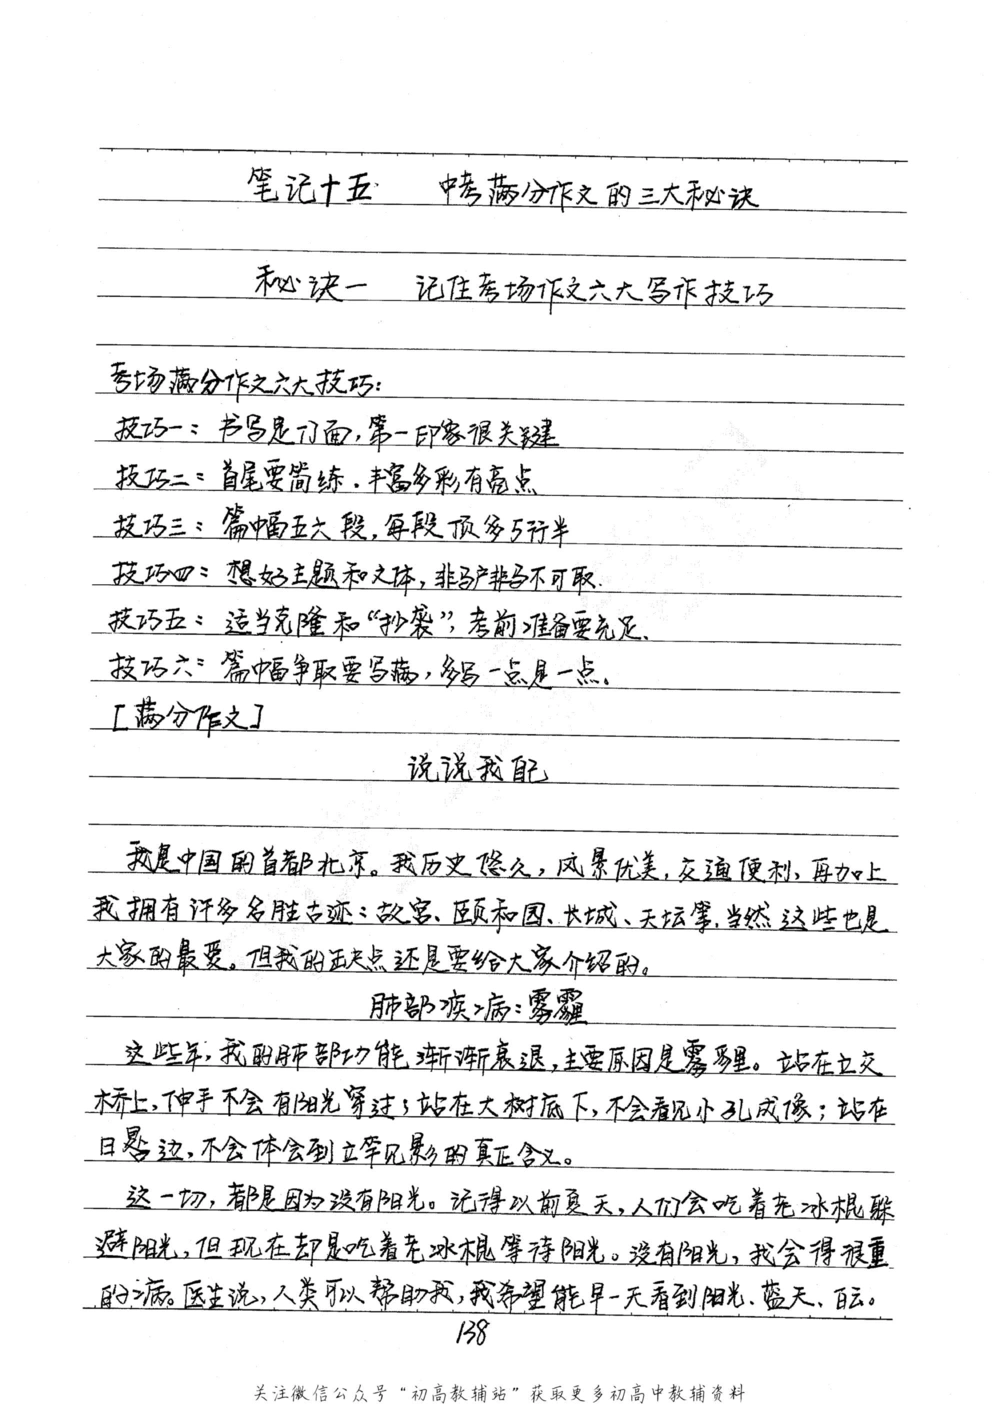 笔记十五 中考满分作文的三大秘诀
秘诀一 记住考场作文六大写作技巧
考场满分作文六大技巧：
技巧一：书写是门面，第一印象很关键
技巧二：首尾要简练．丰富多彩有亮点
技巧三：篇幅五六段，每段顶多5行半
技巧四：想好主题和文体，非驴非马不可取．
技巧五：适当克隆和“抄袭”，考前准备要充足．
技巧六：篇幅争取要写满，多写一点是一点。
［满分作文］
说说我自己
我是中国的首都北京。我历史悠久，风景优美，交通便利，再加上
我拥有许多名胜古迹：故宫、颐和园、长城、天坛等，当然这些也是
大家的最爱。但我的缺点还是要给大家介绍的。
肺部疾病：雾霾
这些年，我的肺部功能渐渐衰退，主要原因是雾霾。站在立交
桥上，伸手不会有阳光穿过；站在大树底下，不会看见小孔成像；站在
日晷边，不会体会到立竿见影的真正含义。
这一切，都是因为没有阳光。记得以前夏天，人们会吃着老冰棍躲
避阳光，但现在却是吃着老冰棍等待阳光。没有阳光，我会得很重
的病。医生说，人类可以帮助我，我希望能早一天看到阳光、蓝天、白云。
138
关注微信公众号“初高教辅站”获取更多初高中教辅资料